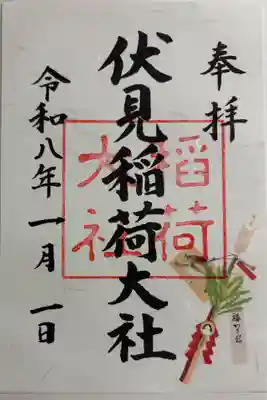 奉拝
伏見稲荷大社
稲荷
大社
令和八年一月一日